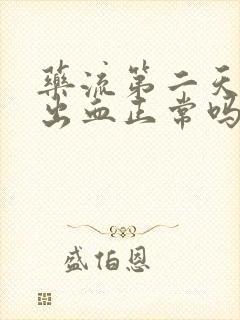 药流第二天
出血正常吗
盛伯恩